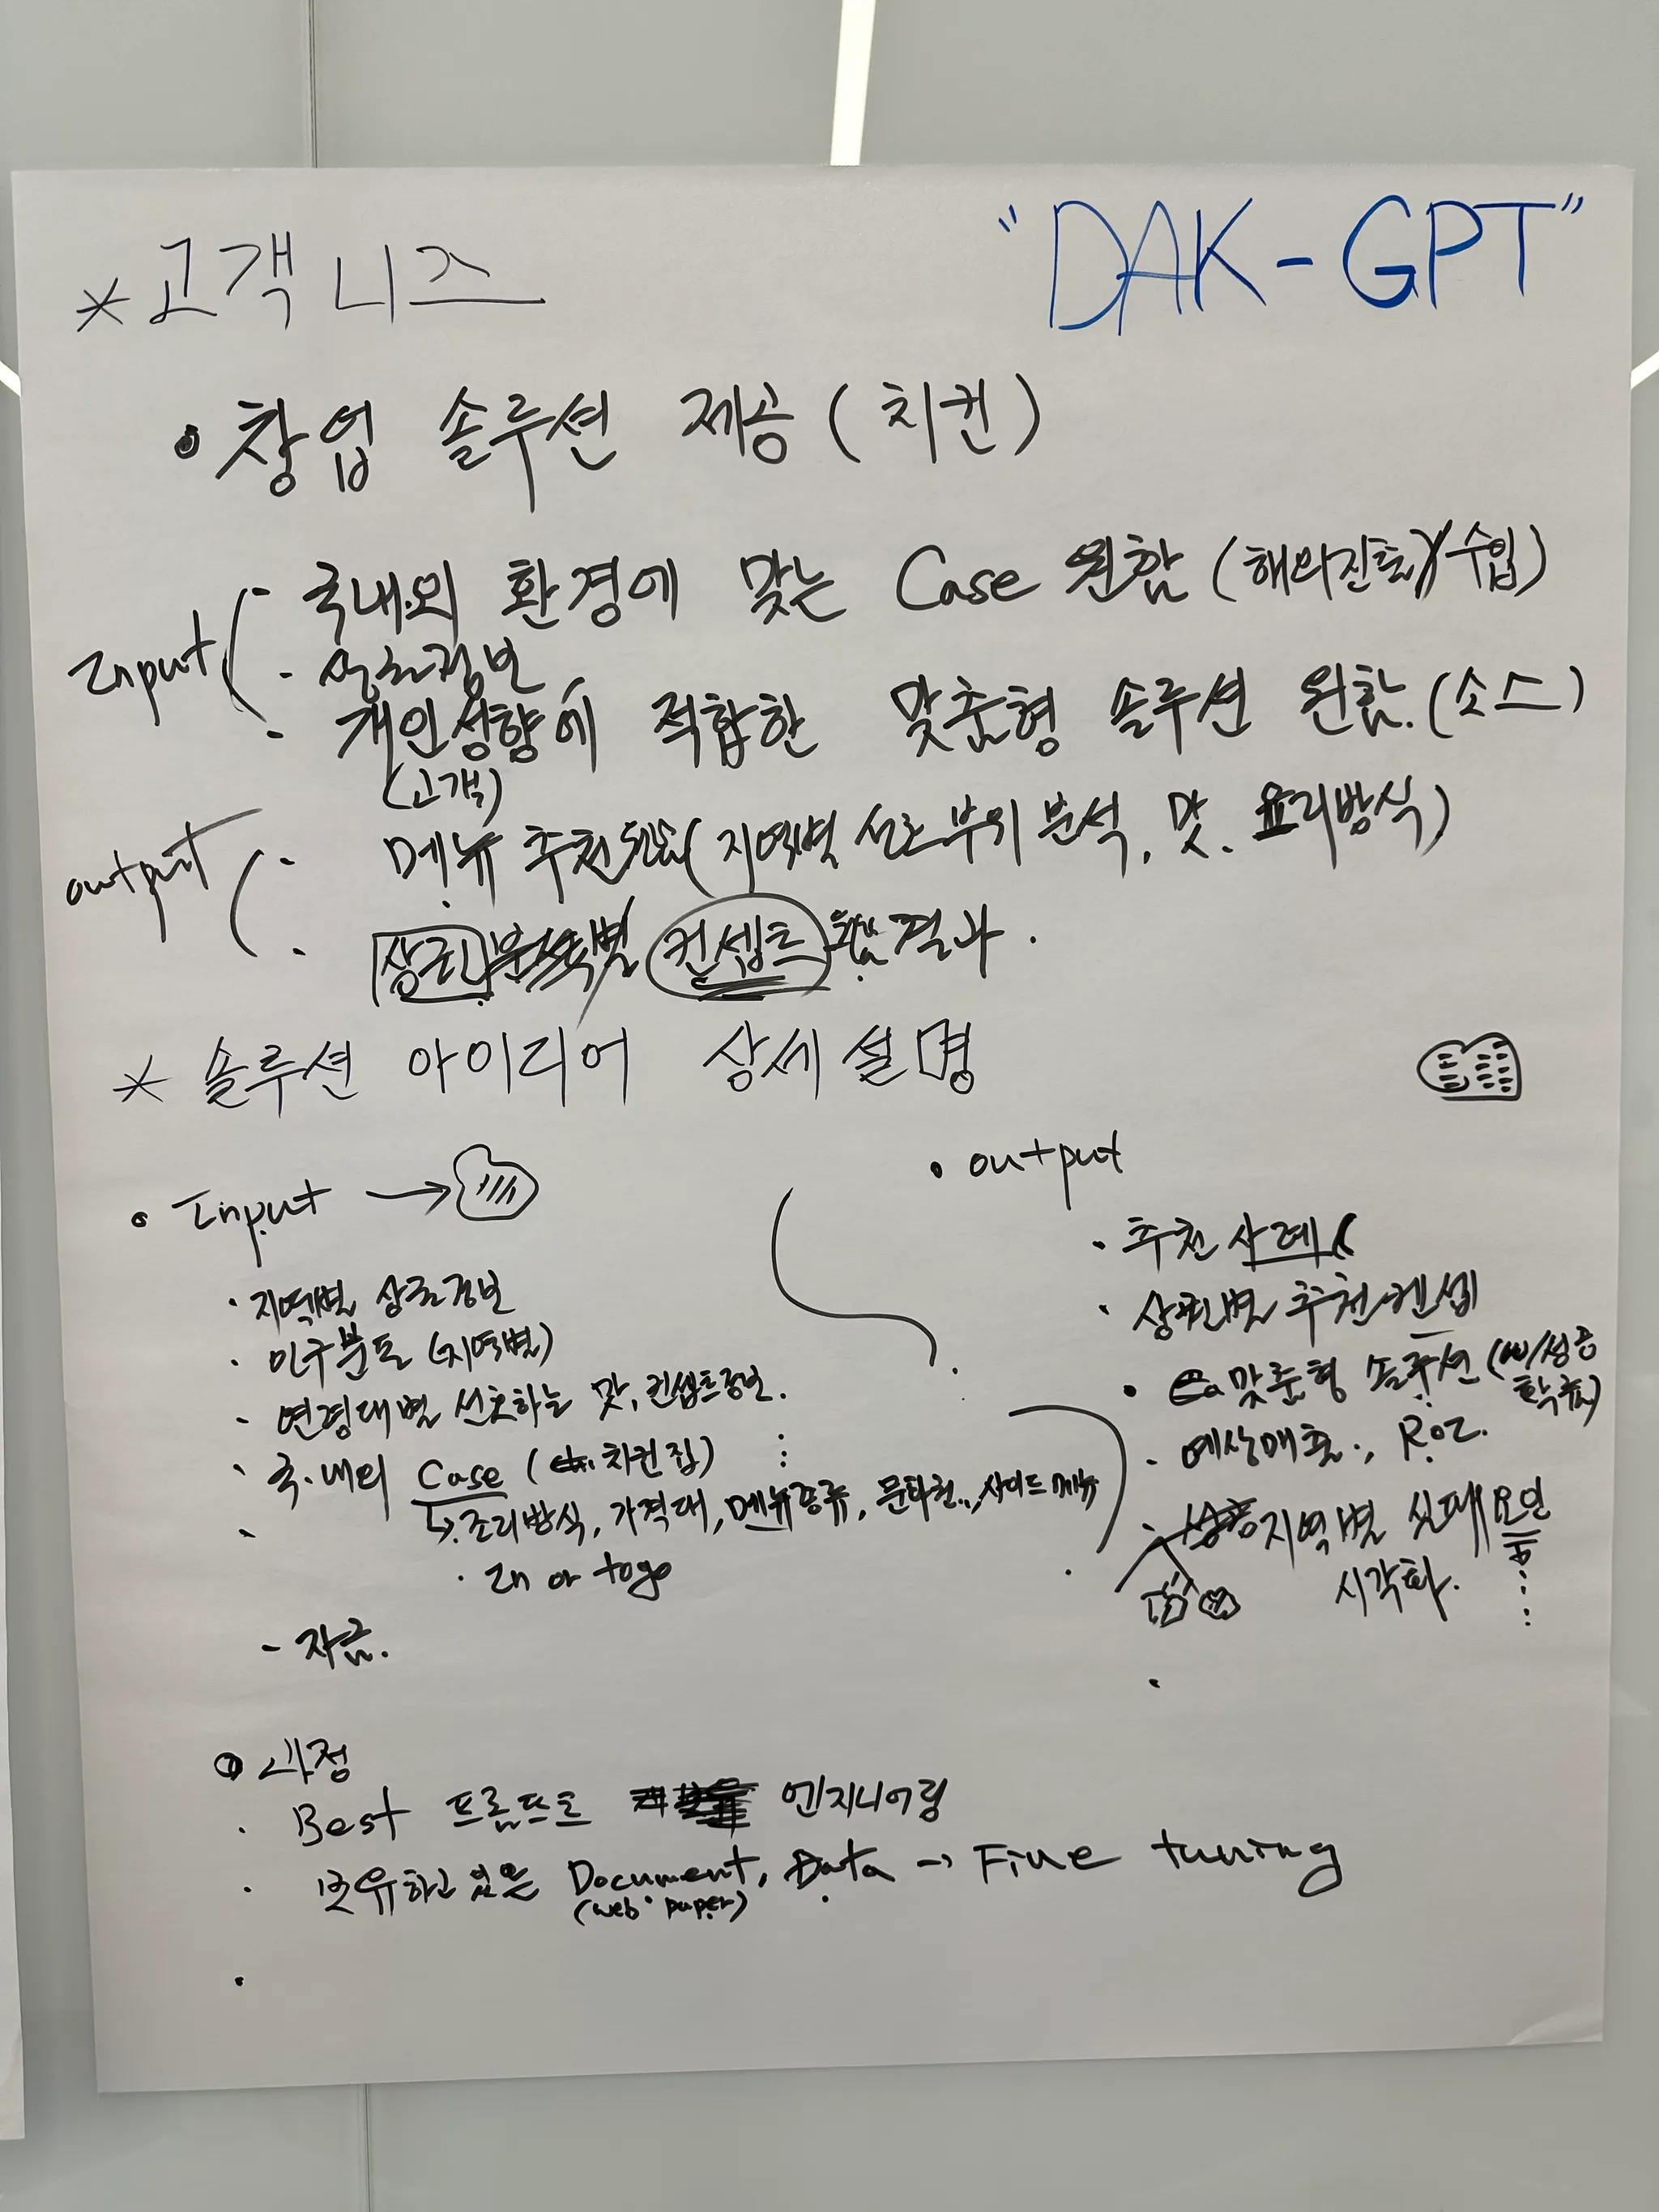 "DAK-GPT"
* 고객 니즈
• 창업 솔루션 제공 (치킨)
Input
- 국내.외 환경에 맞는 Case 원함 (해외진출)/수입)
- 상권정보
- 개인성향에 적합한 맞춤형 솔루션 원함. (소스)
(고객)
output
- 메뉴 추천 (지역별 선호 부위 분석, 맛, 요리방식)
- 상권 분석별 컨셉트 결과.
* 솔루션 아이디어 상세설명
• Input →
· 지역별 상권정보
· 인구분포 (지역별)
· 연령대별 선호하는 맛, 컨셉트정보.
· 국.내외 Case (치킨집)
↳ 조리방식, 가격대, 메뉴종류, 문화권.., 사이드메뉴
· In or togo
- 자금.
• output
· 추천 사례
· 상권별 추천컨셉
• 맞춤형 솔루션 (w/성공
확률)
· 예상매출., ROI.
· 지역별 요일
시각화.
• 과정
· Best 프롬프트 엔지니어링
· 보유하고 있는 Document, Data → Fine tuning
(web. paper)